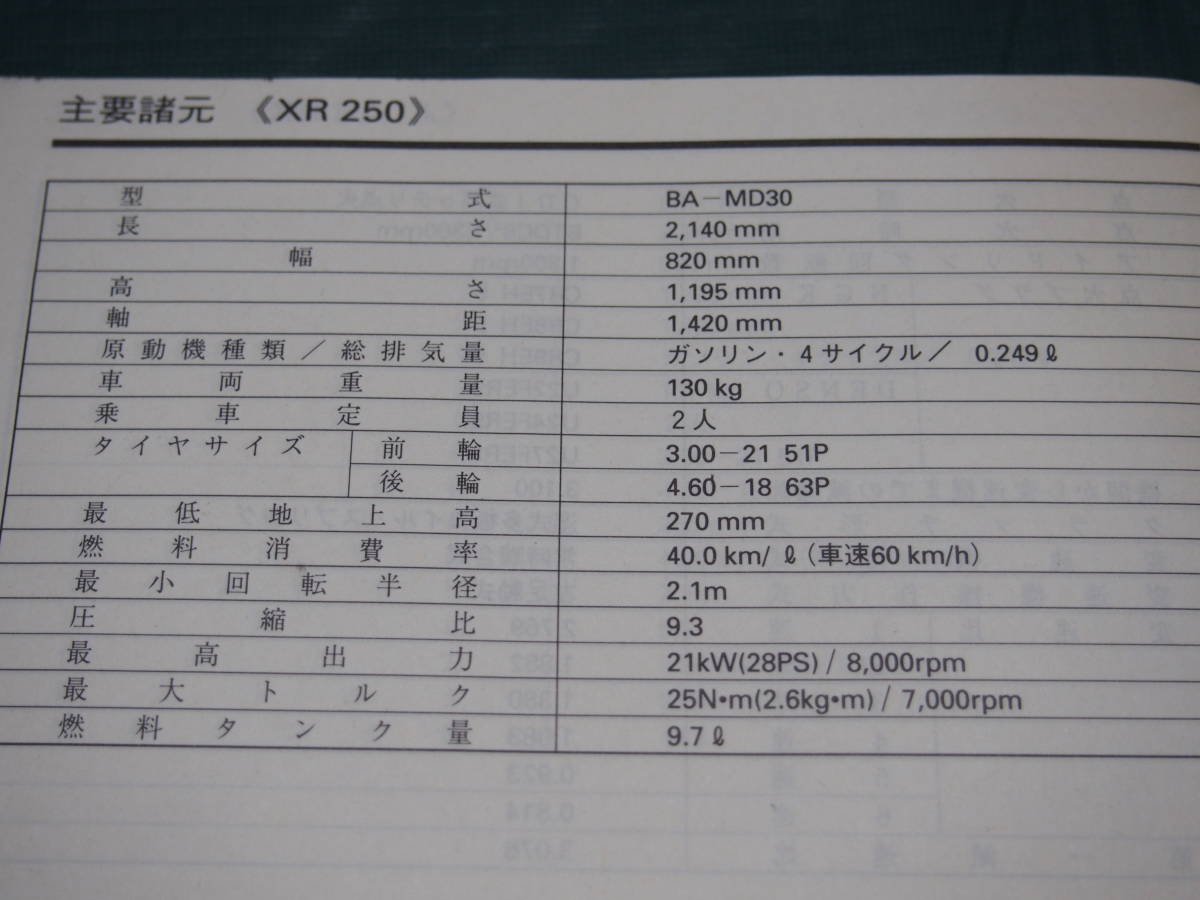 主要諸元 《XR 250》
型式 BA-MD30
長さ 2,140 mm
幅 820 mm
高さ 1,195 mm
軸距 1,420 mm
原動機種類/総排気量 ガソリン・4サイクル/ 0.249ℓ
車両重量 130 kg
乗車定員 2人
タイヤサイズ 前輪 3.00-21 51P
後輪 4.60-18 63P
最低地上高 270 mm
燃料消費率 40.0 km/ℓ(車速60 km/h)
最小回転半径 2.1m
圧縮比 9.3
最高出力 21kW(28PS) / 8,000rpm
最大トルク 25N•m(2.6kg•m) / 7,000rpm
燃料タンク量 9.7ℓ